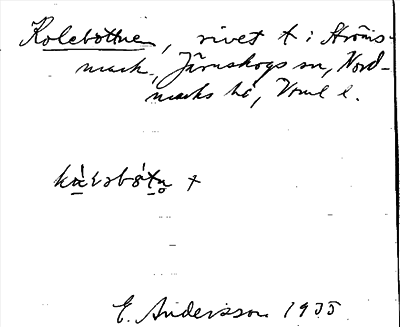 Kolebottnen, rivet t i Ströms-
mark, Järnskogs sn, Nord-
marks hd, Vrml l.
E. Andersson 1935